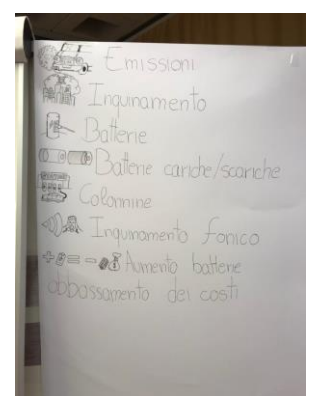 Emissioni
Inquinamento
Batterie
Batterie cariche/scariche
Colonnine
Inquinamento fonico
+ = - Aumento batterie
abbassamento dei costi